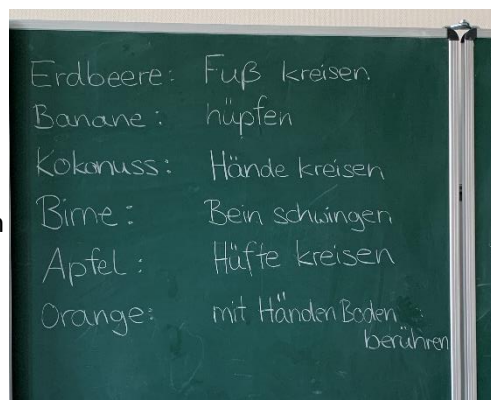 Erdbeere: Fuß kreisen
Banane: hüpfen
Kokonuss: Hände kreisen
Birne: Bein schwingen
Apfel: Hüfte kreisen
Orange: mit Händen Boden
berühren